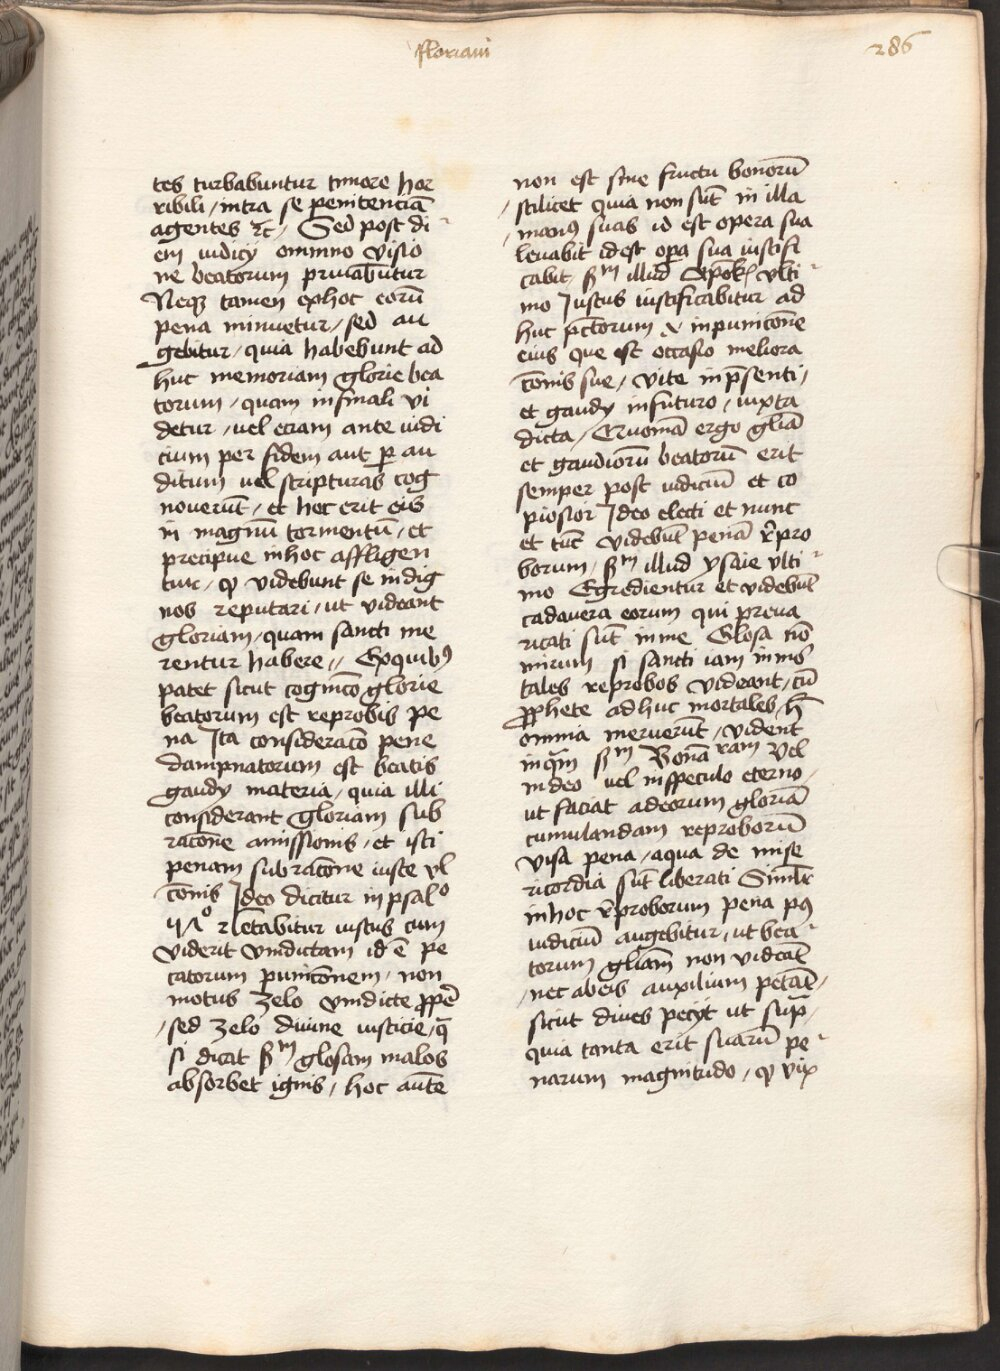 floriani
286
tes turbabuntur timore hor
ribili / intra se penitenciā
agentes ⁊c / Sed post di
em iudicij omnino visio
ne beatorum priuabūtur
Neqꝫ tamen exhoc eorū
pena minuetur / sed au
gebitur / quia habebunt ad
huc memoriam glorie bea
torum / quam in finali vi
detur / uel etiam ante iudi
cium per fidem aut ꝑ au
ditum uel scripturas cog
nouerūt / et hoc erit eis
in magnū tormentū / et
precipue inhoc affligen
tur / ꝙ videbunt se indig
nos reputari / ut videant
gloriam / quam sancti me
rentur habere // Exquibꝰ
patet sicut cognicō glorie
beatorum est reprobis pe
na Ita consideracō pene
dampnatorum est beatis
gaudij materia / quia illi
considerant gloriam sub
racōne amissionis / et isti
penam sub racōne iuste vl
cōnis Ideo dicitur in psalº
lētabitur iustus cum
viderit vindictam id ē pe
catorum punicōnem / non
motus zelo vindicte ꝓpē
/ sed zelo diuine iusticie / q̄
si dicat ẜm glosam malos
absorbet ignis / hoc autē
non est sine fructu bonorū
/ scilicet quia non sūt in illa
/ manꝰ suas id est opera sua
leuabit id est oꝑa sua iustifi
cabit / ẜm illud Apok vlti
mo Iustus iustificabitur ad
huc pctorum inpunicōne
eius que est occasio meliora
cōnis sue / vite in p̄senti /
et gaudij infuturo / iuxta
dicta / ergo gliā
et gaudiorū beatorū erit
semper post iudiciū et co
piosior Ideo electi et nunc
et tūc videbūt penā r̄pro
borum / ẜm illud ysaie vlti
mo Egredientur et videbūt
cadauera eorum qui preua
ricati sūt in me Glosa nō
mirum si sancti iam inmor
tales reprobos videant / cū
ꝓphete adhuc mortales h̄
omnia meruerūt / vident
inq̄m ẜm Bonā ram vel
in deo uel inspeculo eterno /
ut faciat adeorum gloriā
cumulandam reproborū
visa pena / aqua de mise
ricordia sūt liberati Simlr
inhoc r̄proborum pena pꝰ
iudiciū augebitur / ut bea
torum gliam non videāt
/ nec abeis auxilium petāt /
sicut diues pecijt ut supͣ /
quia tanta erit suarū pe
narum magnitudo / ꝙ vix